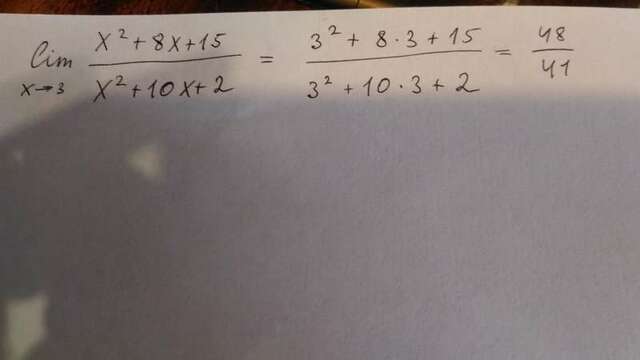 lim x→3 (x²+8x+15)/(x²+10x+2) = (3²+8·3+15)/(3²+10·3+2) = 48/41